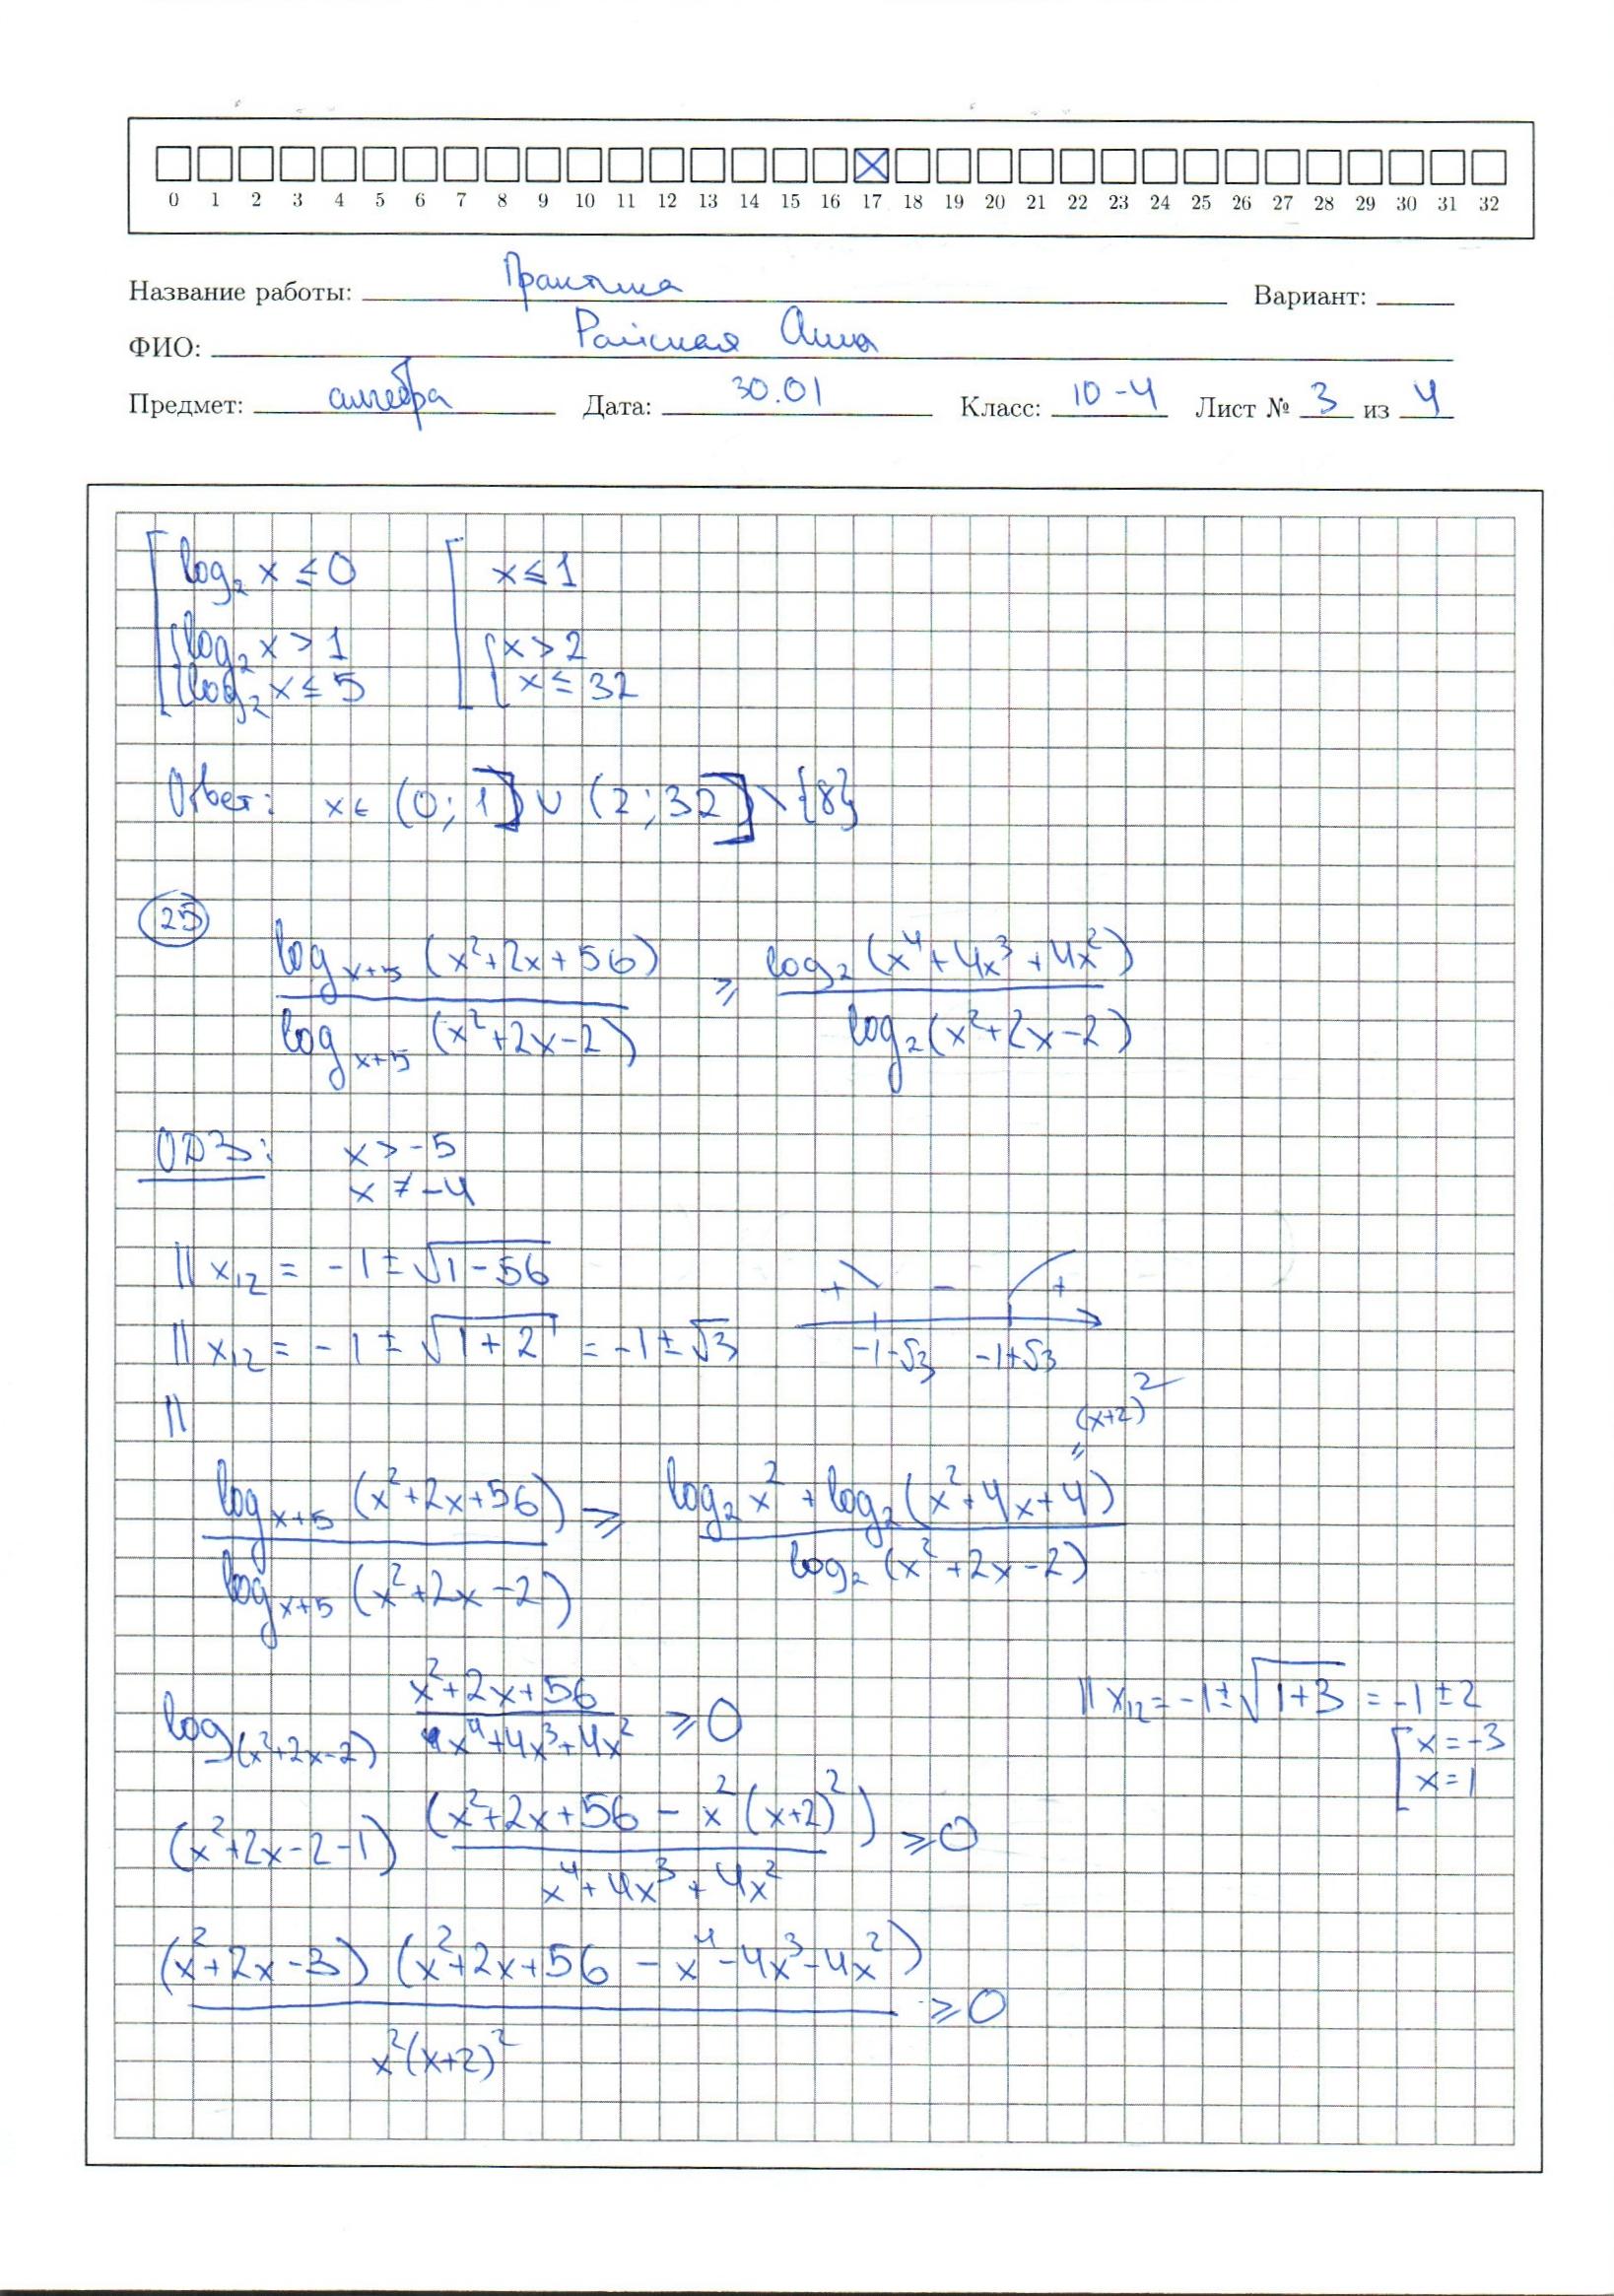 0 1 2 3 4 5 6 7 8 9 10 11 12 13 14 15 16 17 18 19 20 21 22 23 24 25 26 27 28 29 30 31 32
Название работы: Практика Вариант:
ФИО: Райская Анна
Предмет: алгебра Дата: 30.01 Класс: 10-4 Лист № 3 из 4
log₂ x ≤ 0 x ≤ 1
log₂ x > 1 x > 2
log₂ x ≤ 5 x ≤ 32
Ответ: x ∈ (0; 1] ∪ (2; 32] \ {8}
25
log_{x+5} (x²+2x+56) / log_{x+5} (x²+2x-2) ≥ log₂ (x⁴+4x³+4x²) / log₂ (x²+2x-2)
ОДЗ: x > -5
x ≠ -4
|| x₁₂ = -1 ± √(1-56)
+ − +
|| x₁₂ = -1 ± √(1+2) = -1 ± √3 -1-√3 -1+√3
||
(x+2)²
"
log_{x+5} (x²+2x+56) / log_{x+5} (x²+2x-2) ≥ log₂ x² + log₂ (x²+4x+4) / log₂ (x²+2x-2)
log_{(x²+2x-2)} (x²+2x+56) / (x⁴+4x³+4x²) ≥ 0 || x₁₂ = -1 ± √(1+3) = -1 ± 2
x = -3
x = 1
(x²+2x-2-1) (x²+2x+56 - x²(x+2)²) / (x⁴+4x³+4x²) ≥ 0
(x²+2x-3) (x²+2x+56 - x⁴-4x³-4x²) / x²(x+2)² ≥ 0